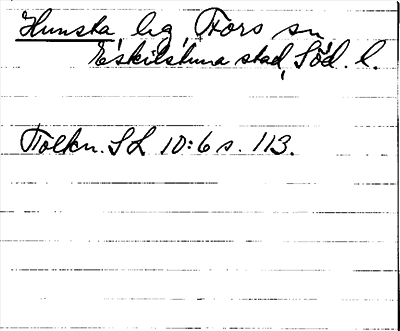 Hunsta, lig, Fors sn,
Eskilstuna stad, Söd. l.
Tolkn. SL 10:6 s. 113.